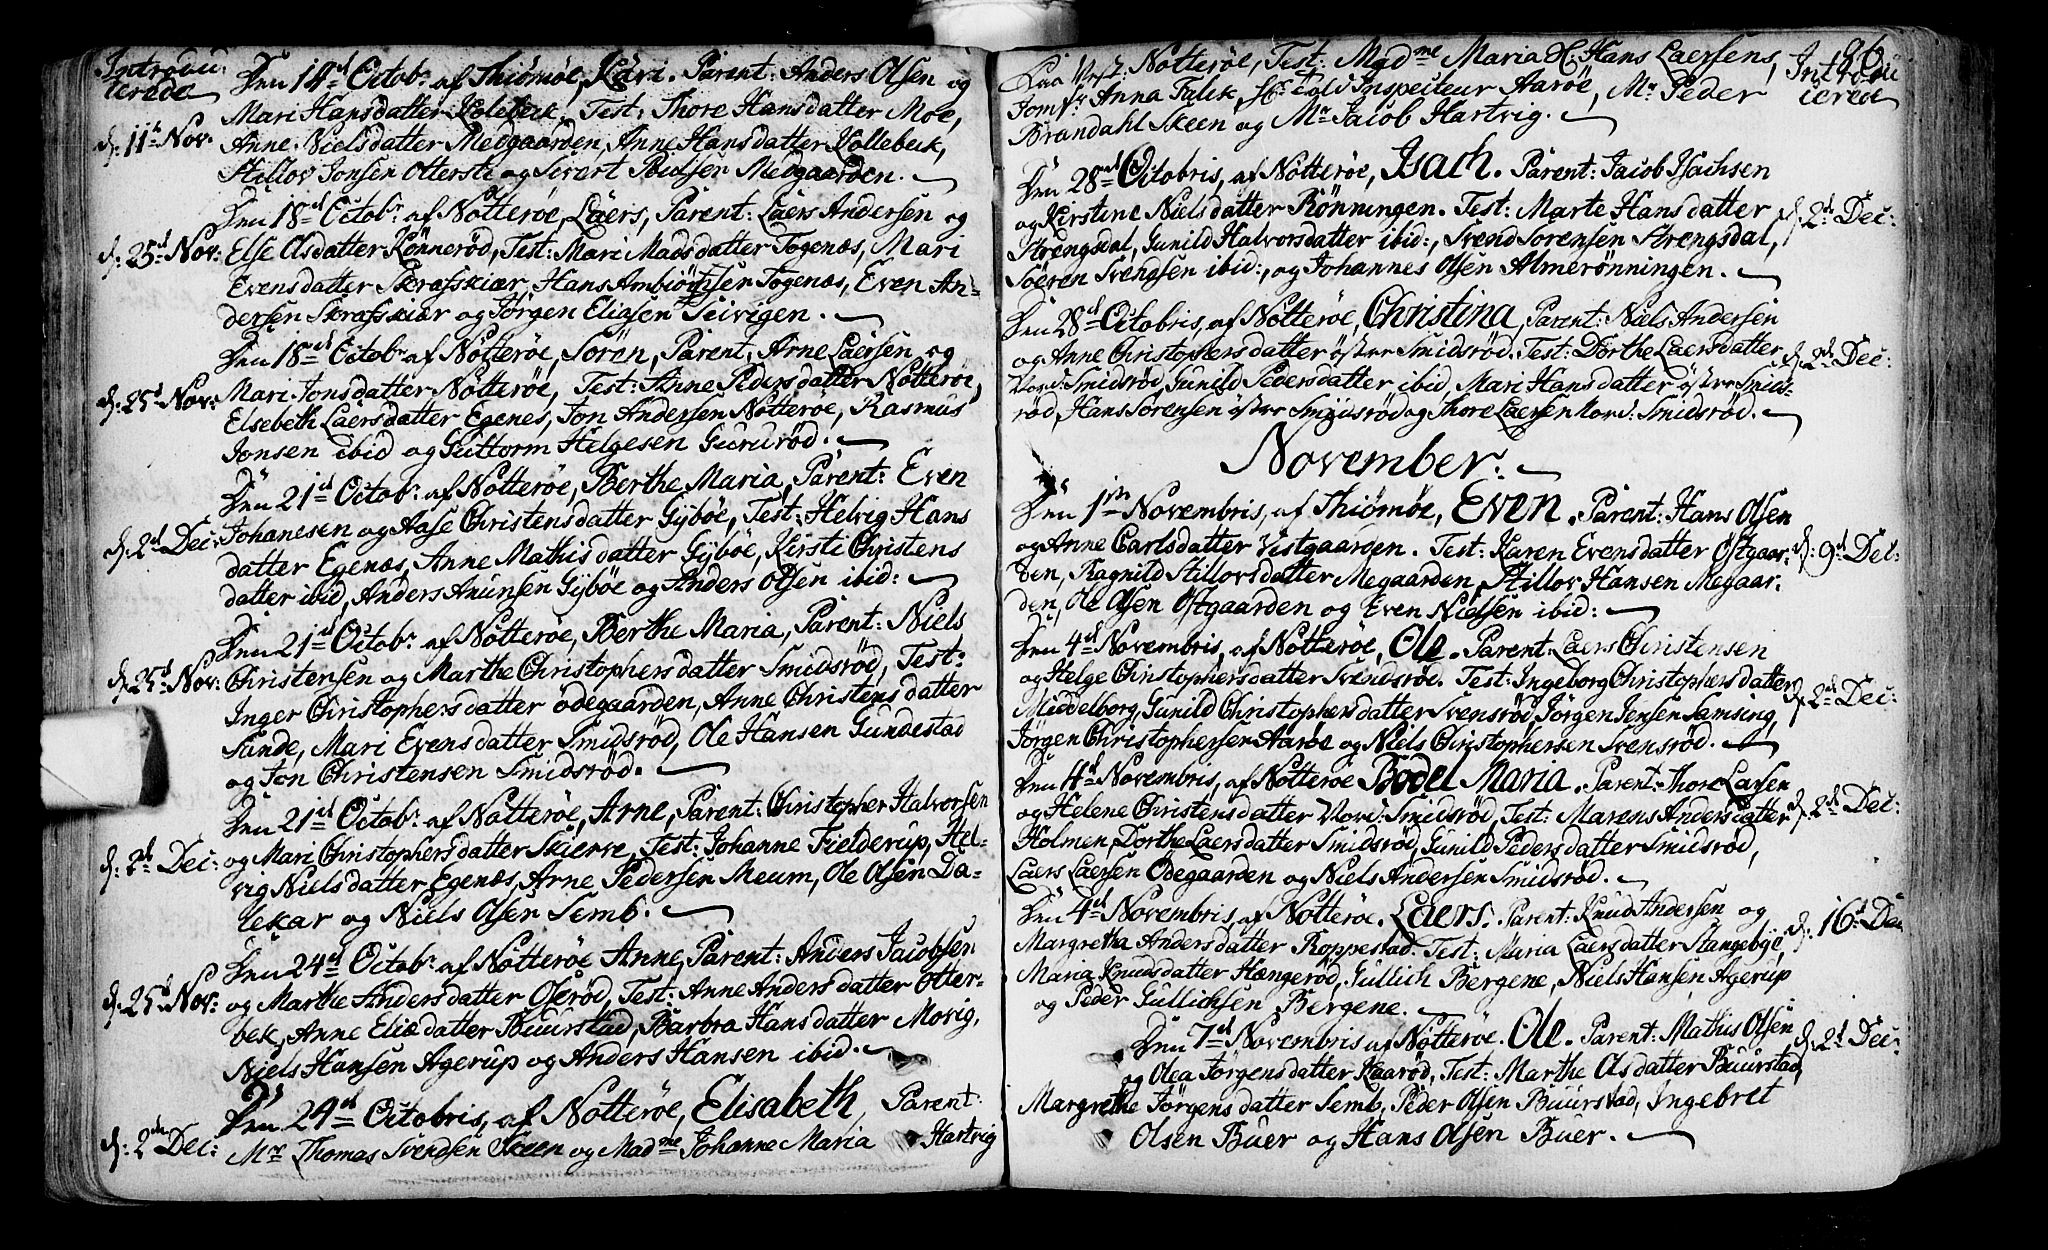 Introdu
cerede
Den 14d Octobr af Thiömöe, Kari. Parent: Anders Olsen og
Mari Hansdatter Kolebek, Test: Thore Hansdatter Moe,
d: 11t Nov: Anne Nielsdatter Medgaarden, Anne Hansdatter Kollebek,
Stillov Jonsen Ottersti og Sivert Medgaarden.
Den 18d Octobr af Nötteröe, Laers, Parent: Laers Andersen og
d: 25d Nov: Else Olsdatter Könneröd, Test: Mari Madsdatter Togenæs, Mari
Evensdatter Skrafskiær, Hans Ambiörnsen Togenæs, Even An-
dersen Skrafskiær og Jörgen Eliasen Teivigen.
Den 18d Octobr af Nötteröe, Sörén, Parent: Arne Laersen og
d: 25d Nov: Mari Jonsdatter Nötteröe, Test: Anne Pedersdatter Nötteröe,
Elsebeth Laersdatter Egenes, Jon Andersen Nötteröe, Rasmus
Jonsen ibid og Guttorm Helgesen Gururöd.
Den 21d Octobr af Nötteröe, Berthe Maria, Parent: Even
d: 2d Dec: Johanesen og Aase Christensdatter Gÿböe, Test: Helvig Hans
datter Egenæs, Anne Mathisdatter Gÿböe, Kirsti Christens
datter ibid, Anders Anunsen Gÿböe og Anders Olsen ibid:
Den 21d Octobr af Nötteröe, Berthe Maria, Parent: Niels
d: 25d Nov: Christensen og Marthe Christophersdatter Smidsröd, Test:
Inger Christophersdatter ödegaarden, Anne Christensdatter
Sande, Mari Evensdatter Smidsröd, Ole Hansen Gundestad
og Jon Christensen Smidsröd.
Den 21d Octobr af Nötteröe, Arne, Parent: Christopher Halvorsen
d: 2d Dec: og Mari Christophersdatter Skierve, Test: Johanne Fielderup, Hel-
vig Nielsdatter Egenæs, Arne Pedersen Meum, Ole Olsen Da-
lekar og Niels Olsen Semb.
Den 24d Octobr af Nötteröe Anne, Parent: Anders Jacobsen
d: 25d Nov: og Marthe Andersdatter Oseröd, Test: Anne Andersdatter Otter-
bek, Anne Eliædatter Buurstad, Barbra Hansdatter Movig,
Niels Hansen Agerup og Anders Hansen ibid.
Den 24d Octobris, af Nötteröe, Elisabeth, Parent:
d: 2d Dec: Mr Thomas Svendsen Skeen og Madme Johanne Maria Hartvig
86
Introdu
cerede
paa Nötteröe, Test: Madme Maria Hans Laersens,
Jomfr Anna Falck, Hr Told Inspecteur Aaröe, Mr Peder
Brandahl Skeen og Mr Jacob Hartvig.
Den 28d Octobris, af Nötteröe, Isach. Parent: Jacob Isachsen
og Kirstine Nielsdatter Rönningen. Test: Marte Hansdatter d: 2d Dec:
Strengsdal, Gunild Halvorsdatter ibid:, Svend Sorensen Strengsdal,
Soéren Svendsen ibid:, og Johannes Olsen Almerönningen.
Den 28d Octobris, af Nötteröe, Christina, Parent: Niels Andersen
og Anne Christophersdatter öster Smidsröd. Test: Dorthe Laersdatter d: 2d Dec:
Nord: Smidsröd, Gunild Pedersdatter ibid, Mari Hansdatter öster Smids-
röd, Hans Sörensen öster Smidsröd og Thore Laersen Nord: Smidsröd.
November.
Den 1ste Novembris, af Thiömöe, Even. Parent: Hans Olsen
og Anne Carlsdatter Vestgaarden. Test: Karen Evensdatter Östgaar- d: 9d Dec:
den, Ragnild Stillovsdatter Megaarden, Stillov Hansen Megaar-
den, Ole Olsen Östgaarden og Even Nielsen ibid:
Den 4d Novembris, af Nötteröe, Ole. Parent Laers Christensen
og Helge Christophersdatter Svendsröe. Test: Ingeborg Christophersdatter d: 2d Dec:
Middelborg, Gunild Christophersdatter Svensröd, Jörgen Jensen Samsing,
Jörgen Christophersen Aaröe og Niels Christophersen Svensröd.
Den 4d Novembris, af Nötteröe Bodel Maria. Parent: Thore Larsen
og Helene Christensdatter Nord: Smidsröd, Test: Marens Andersdatter d: 2d Dec:
Holmen, Dorthe Laersdatter Smidsröd, Gunild Pedersdatter Smidsröd,
Laers Laersen Ödegaarden og Niels Andersen Smidsröd.
Den 4d Novembris, af Nötteröe. Laers. Parent: Knud Andersen og
Margretha Andersdatter Roppestad. Test: Maria Laersdatter Stangebÿe, d: 16d Dec
Maria Knudsdatter Hængeröd, Gullich Bergene, Niels Hansen Agerup
og Peder Gullichsen Bergene.
Den 7d Novembris af Nötteröe. Ole. Parent: Mathis Olsen
og Olea Jörgensdatter Kaaröd, Test: Marthe Olsdatter Buurstad, d: 2d Dec:
Margrethe Jörgensdatter Semb, Peder Olsen Buurstad, Ingebret
Olsen Buer og Hans Olsen Buer.